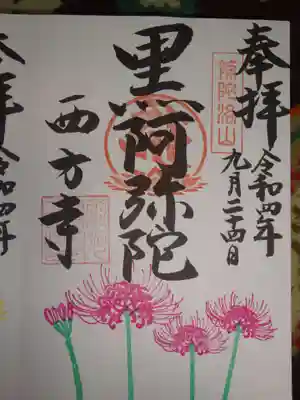 奉拝
令和四年
九月二十四日
補陀洛山
黒阿弥陀
西方寺
本拝
令和四年